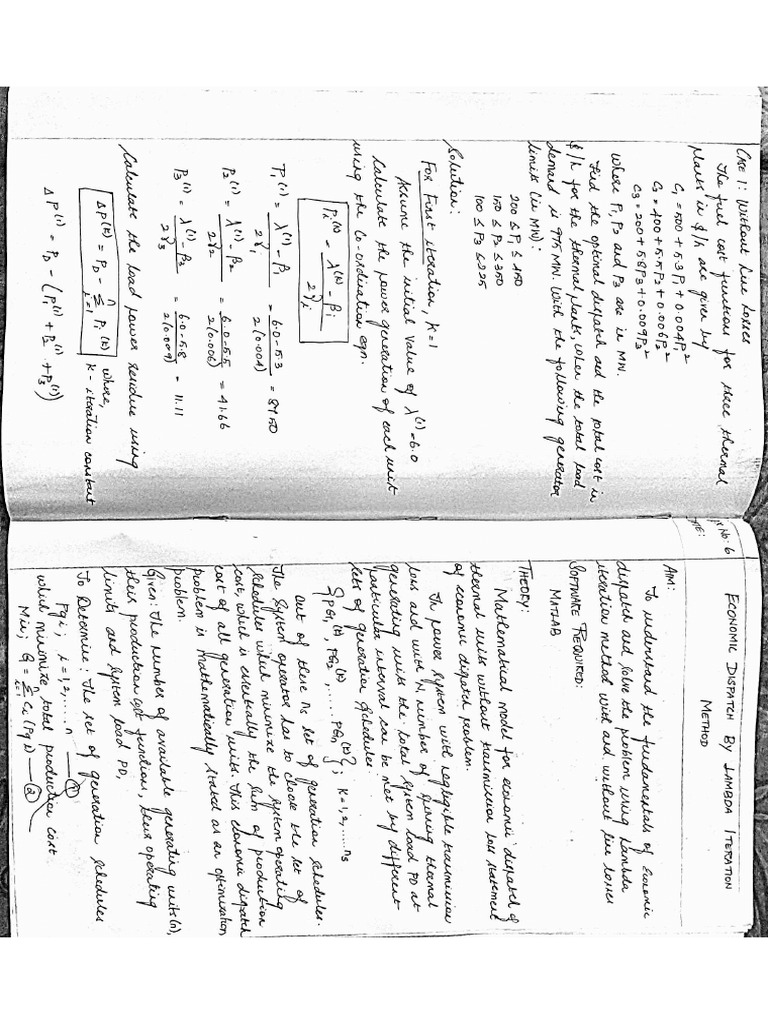 CASE 1: Without Line Losses
The fuel cost functions for three thermal
plants in $/h are given by
C1 = 500 + 5.3P1 + 0.004P1²
C2 = 400 + 5.5P2 + 0.006P2²
C3 = 200 + 5.8P3 + 0.009P3²
where P1, P2 and P3 are in MW.
Find the optimal dispatch and the total cost in
$/h for the thermal plants, when the total load
demand is 975 MW. With the following generator
limits (in MW):
200 ≤ P1 ≤ 450
150 ≤ P2 ≤ 350
100 ≤ P3 ≤ 225
Solution:
For First iteration, k=1
Assume the initial value of λ⁽¹⁾=6.0
Calculate the power generation of each unit
using the Co-ordination eqn.
Pi⁽ᵏ⁾ = λ⁽ᵏ⁾ - βi / 2γi
P1⁽¹⁾ = λ⁽¹⁾ - β1 / 2γ1 = 6.0 - 5.3 / 2(0.004) = 87.50
P2⁽¹⁾ = λ⁽¹⁾ - β2 / 2γ2 = 6.0 - 5.5 / 2(0.006) = 41.66
P3⁽¹⁾ = λ⁽¹⁾ - β2 / 2γ3 = 6.0 - 5.8 / 2(0.009) = 11.11
Calculate the load power residue using
ΔP⁽ᵏ⁾ = PD - Σ Pi⁽ᵏ⁾ where,
n
i=1
k - iteration constant
ΔP⁽¹⁾ = PD - (P1⁽¹⁾ + P2⁽¹⁾ + P3⁽¹⁾)
No: 6
ECONOMIC DISPATCH BY LAMBDA ITERATION
METHOD
AIM:
To understand the fundamentals of Economic
dispatch and solve the problem using Lambda
iteration method with and without line losses
SOFTWARE REQUIRED:
MATLAB
THEORY:
Mathematical model for economic dispatch of
thermal units without transmission loss statement
of economic dispatch problem.
In power system with negligible transmission
loss and with N number of spinning thermal
generating units the total system load PD at
particular interval can be met by different
sets of generation schedules
{PG1⁽ᵏ⁾, PG2⁽ᵏ⁾, ..... PGn⁽ᵏ⁾}; k=1,2,....ns
Out of these ns set of generation schedules.
The system operator has to choose the set of
schedules which minimize the system operating
cost, which is essentially the sum of production
cost of all generation units. This economic dispatch
problem is mathematically stated as an optimization
problem.
Given: The number of available generating units (n),
their production cost functions, their operating
limits and system load PD,
To Determine: The set of generation schedules
Pgi; i=1,2,....n — ①
which minimize total production cost
Min; = Σ Ci (Pgi) — ②
n
i=1